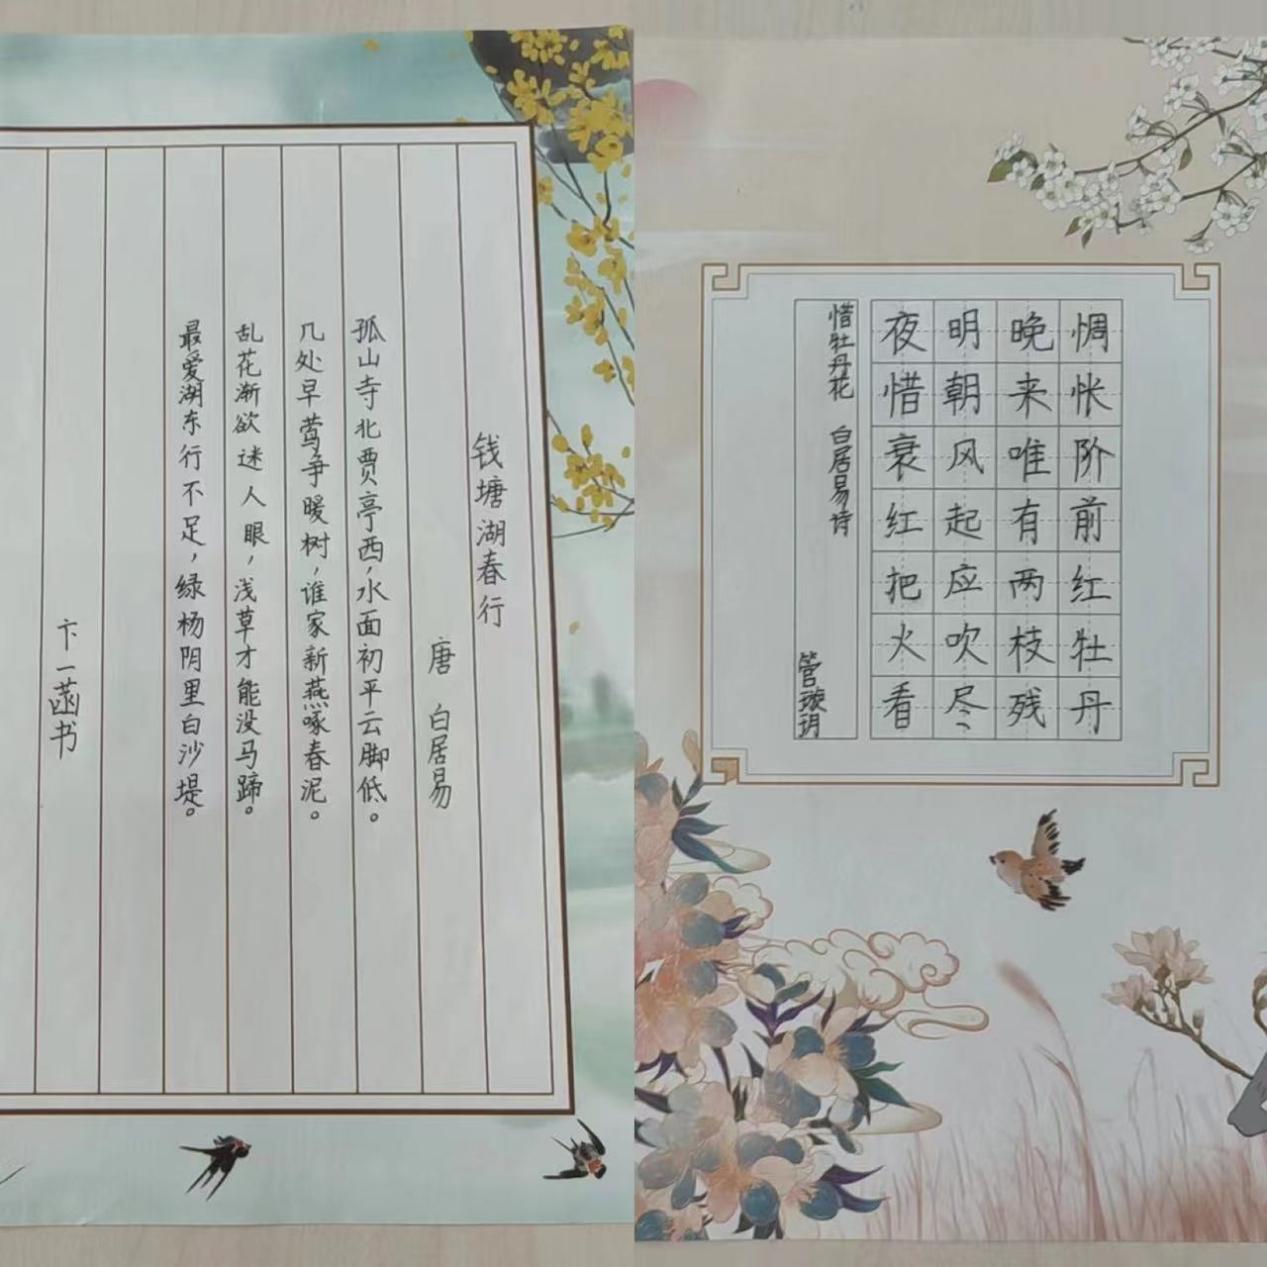 钱塘湖春行
唐 白居易
孤山寺北贾亭西，水面初平云脚低。
几处早莺争暖树，谁家新燕啄春泥。
乱花渐欲迷人眼，浅草才能没马蹄。
最爱湖东行不足，绿杨阴里白沙堤。
卞一菡书
惆怅阶前红牡丹
晚来唯有两枝残
明朝风起应吹尽
夜惜衰红把火看
惜牡丹花 白居易诗
管璇玥